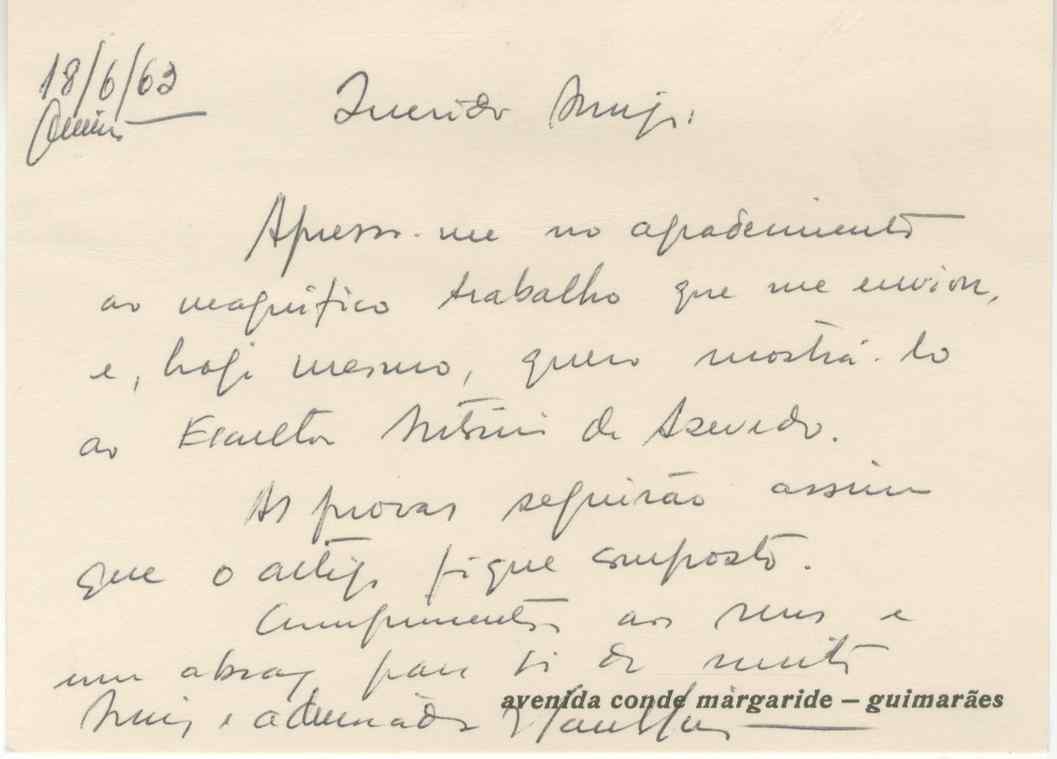 18/6/63
Querido Amigo:
Apresso-me no agradecimento
ao magnífico trabalho que me enviou,
e, hoje mesmo, quero mostrá-lo
ao Escultor António de Azevedo.
As provas seguirão assim
que o artigo fique composto.
Cumprimentos aos seus e
um abraço para si do muito
Amigo e admirador
avenida conde margaride — guimarães